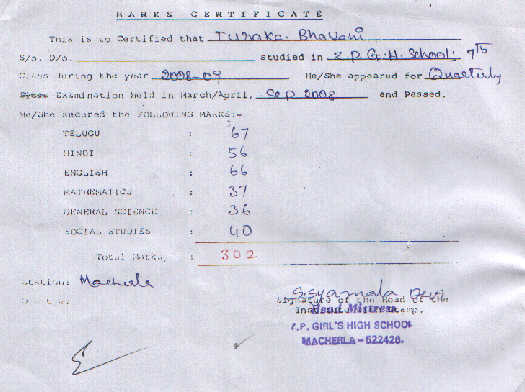 MARKS CERTIFICATE
This is to Certified that Turaka. Bhavani
S/o. D/o. studied in Z.P.G.H. School. 7th
Class during the year 2008-09 He/She appeared for Quarterly
Examination held in March/April, Sep 2008 and Passed.
He/She secured the FOLLOWING MARKS:-
TELUGU : 67
HINDI : 56
ENGLISH : 66
MATHEMATICS : 37
GENERAL SCIENCE : 36
SOCIAL STUDIES : 40
Total Marks : 302
Station: Macherla
S. Syamala Devi
Signature of the Head of the
Head Mistress
Z.P. GIRL'S HIGH SCHOOL
MACHERLA - 522426.